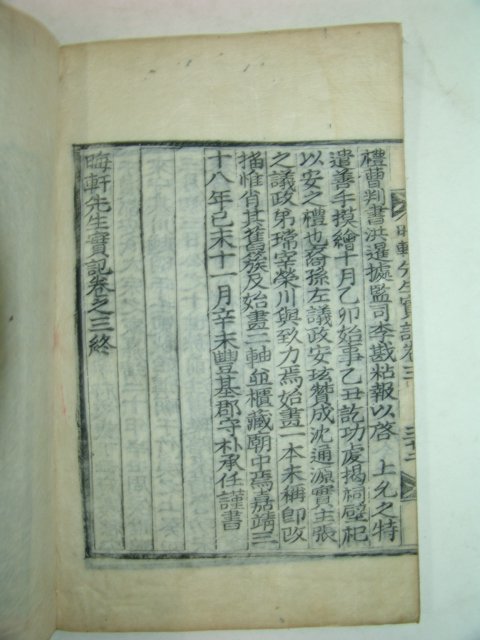 禮曹判書洪暹據監司李戡粘報以啓　上允之特
遣善手摸繪十月乙卯始事乙丑訖功處揭祠壁祀
以安之禮也裔孫左議政安玹贊成沈通源實主張
之議政弟瑺宰榮川與致力焉始畫一本未稱卽改
描惟肖其舊簇及始畫二軸並櫃藏廟中焉嘉靖三
十八年己未十一月辛未豐基郡守朴承任謹書
晦軒先生實記卷之三終
晦軒先生實記卷三